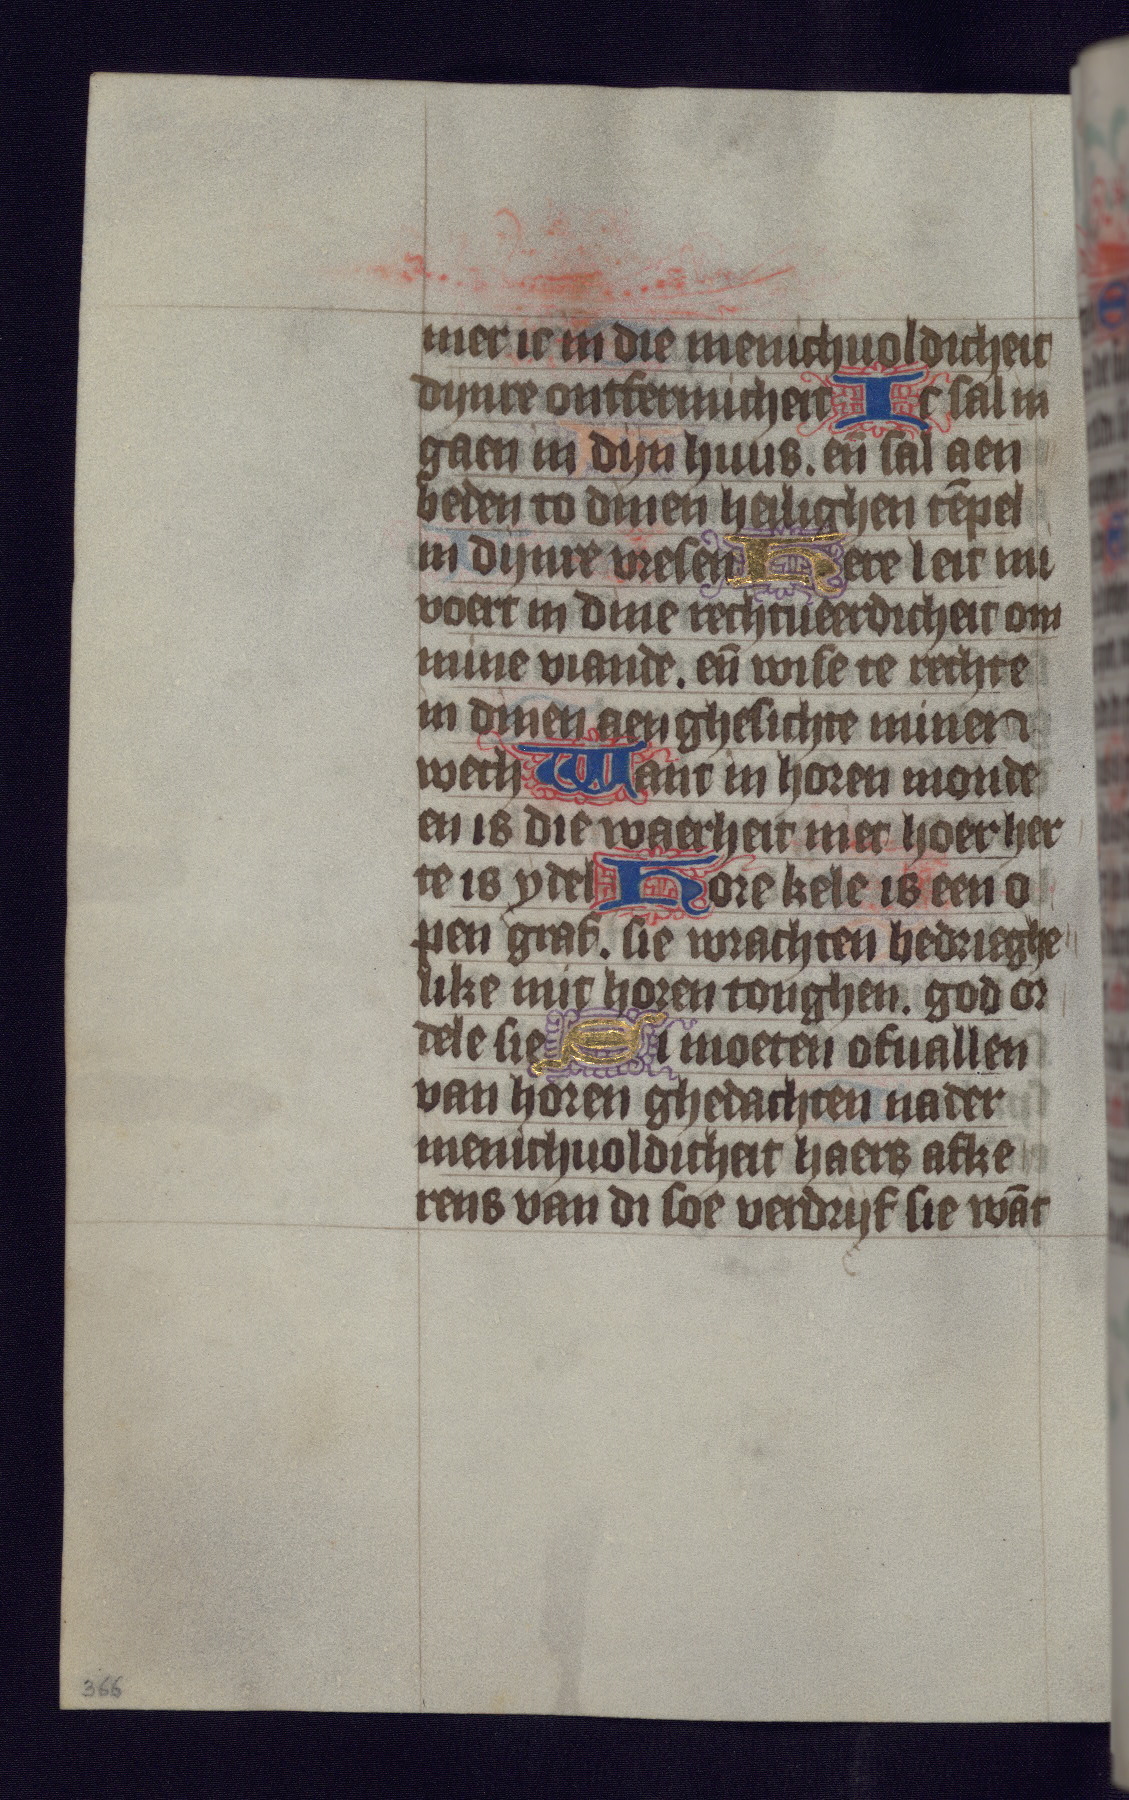 mer ic in die menichuoldicheit
dijnre ontfermicheit Ic sal in
gaen in dijn huus. eñ sal aen
beden to dinen heilighen tēpel
in dijnre vresen Here leit mi
voert in dine rechtueerdicheit om
mine viande. eñ wise te rechte
in dinen aenghesichte minen
wech Want in horen monde
en is die waerheit niet hoer her
te is ydel Hore kele is een o
pen graf. sie wrachten bedrieghe
like mit horen tonghen. god or
dele sie Si moeten ofuallen
van horen ghedachten na der
menichuoldicheit haers afke
rens van di soe verdrijf sie wāt
366